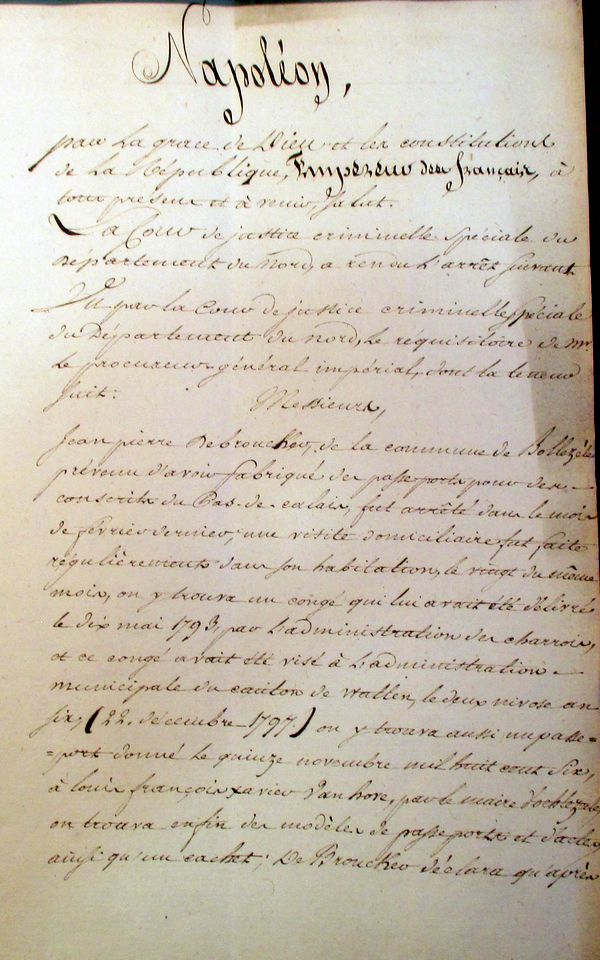 Napoléon,
par La grace de Dieu et les constitutions
de La République, Empereur des français, à
tous présens et à venir, Salut.
La Cour de justice criminelle spéciale du
Département du Nord, a rendu L'arrêt suivant
Vu par La Cour de justice criminelle spéciale
du Département du Nord, Le réquisitoire de Mr.
Le procureur général impérial, dont la teneur
suit.
Messieurs,
Jean pierre Debroucker, de la commune de Bollezéele
prévenu d'avoir fabriqué des passeports pour des
conscrits du Pas-de-calais, fut arrêté dans le mois
de février dernier; une visite domiciliaire fut faite
régulièrement dans son habitation, le vingt du même
mois, on y trouva un congé qui lui avait été délivré
le dix mai 1793, par L'administration des charrois,
et ce congé avait été visé à L'administration
municipale du canton de Watten, le deux nivose an
six, (22. décembre 1797.) on y trouva aussi un passe-
=port donné le quinze novembre mil huit cent six,
à louis françois xavier Vanhove, par le maire d'ochtezeele,
on trouva enfin des modèles de passeports et d'actes
ainsi qu'un cachet; De Broucker déclara qu'après